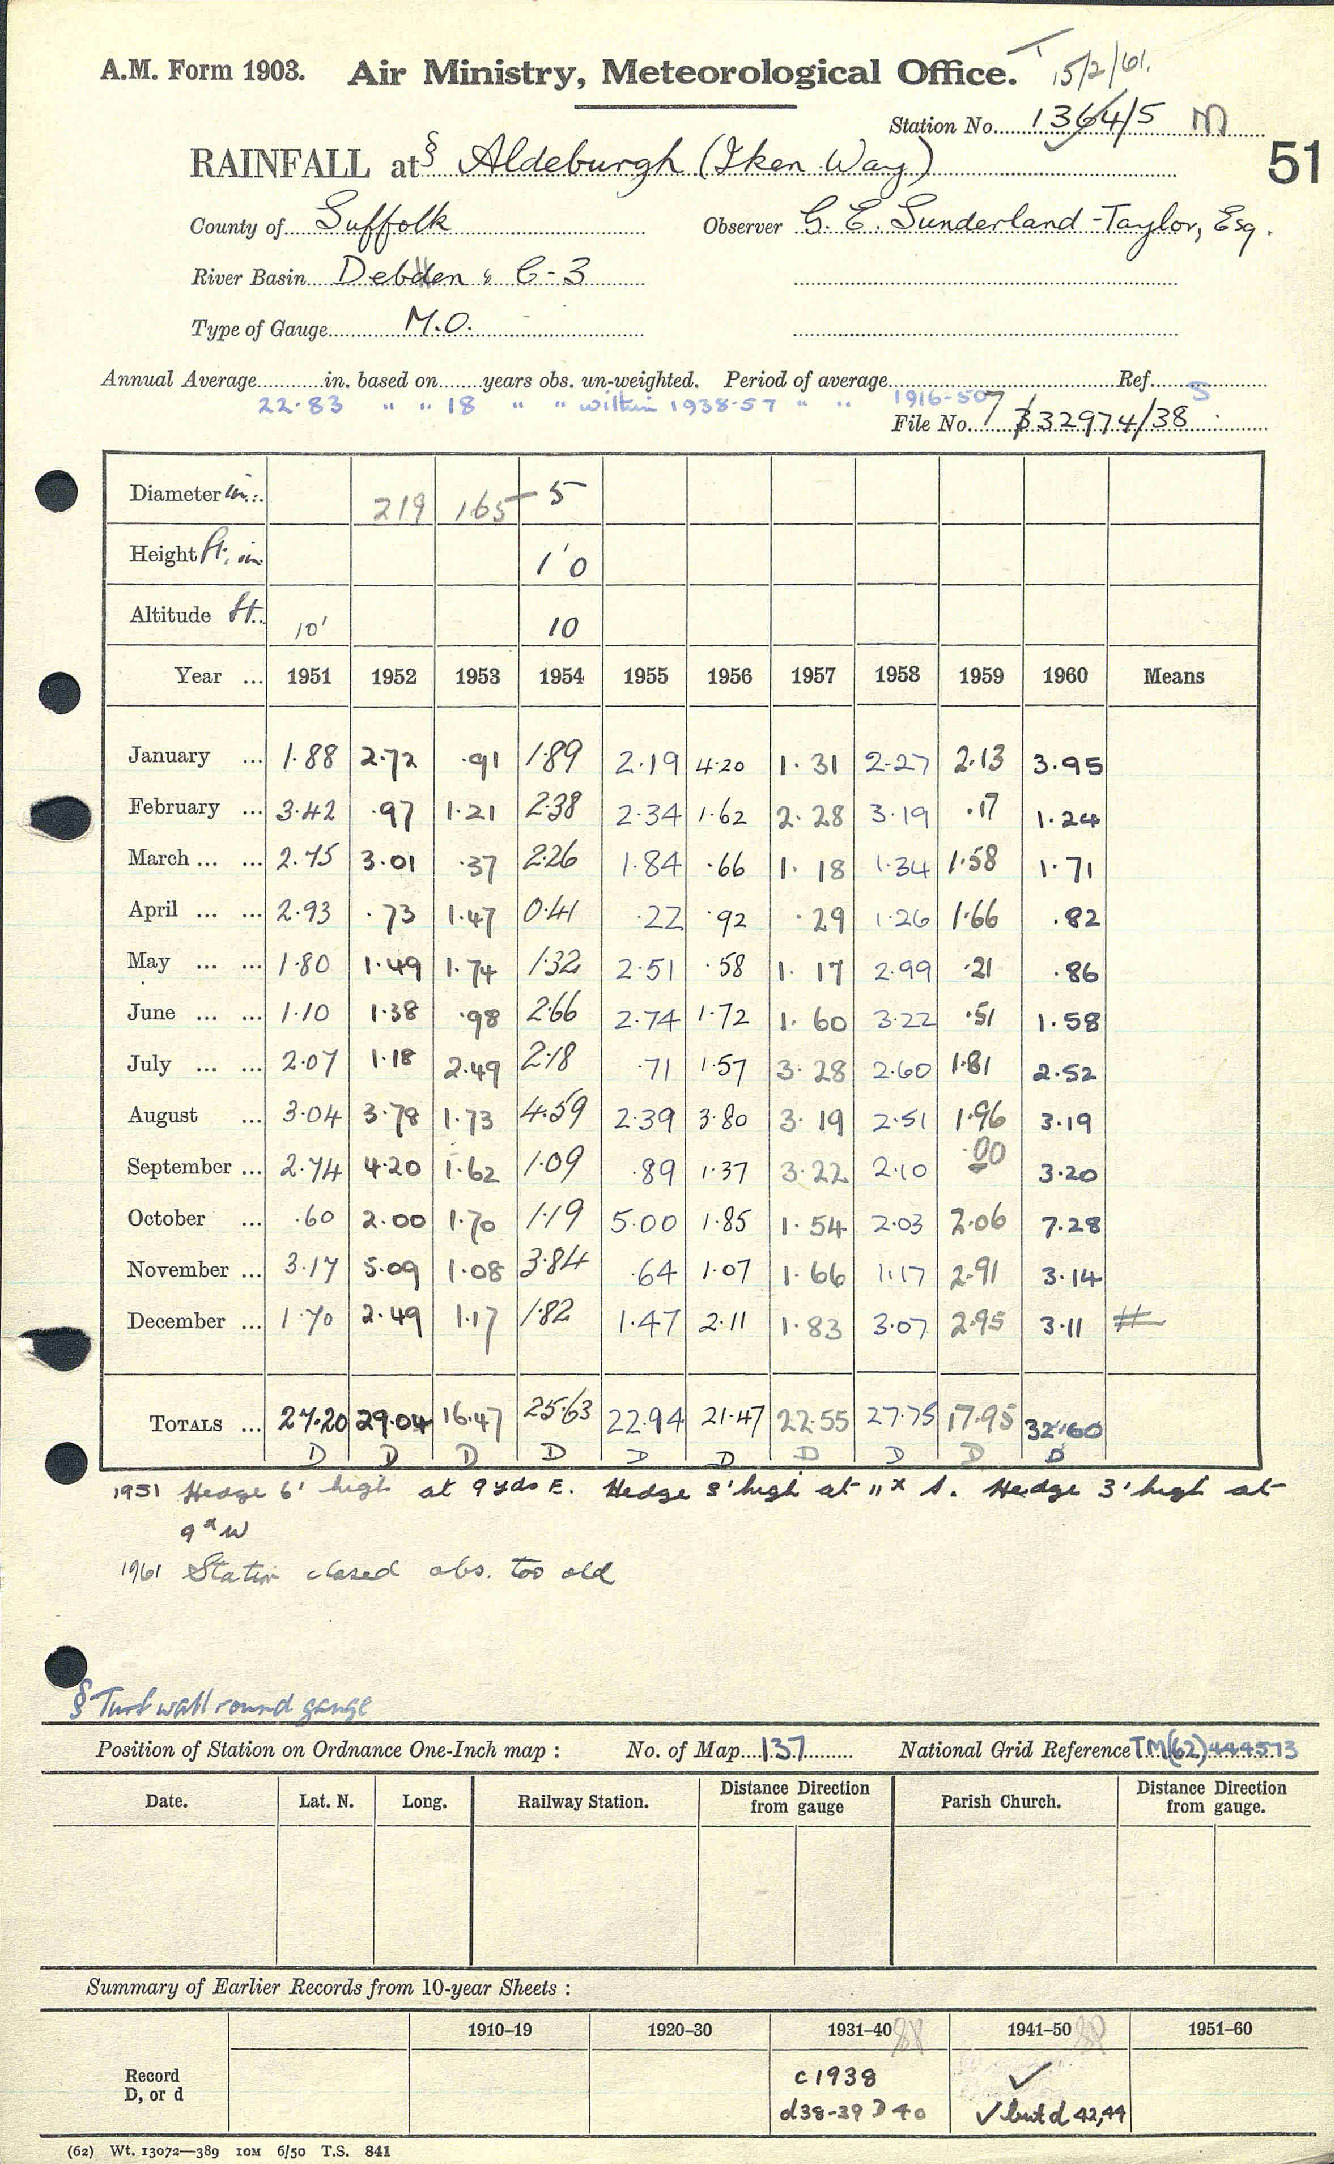 A.M. Form 1903. Air Ministry, Meteorological Office. 15/2/61.
Station No. 1364/5 M
51
RAINFALL at § Aldeburgh (Iken Way)
County of Suffolk Observer G. E. Sunderland-Taylor, Esq.
River Basin Debden & C-3
Type of Gauge M.O.
Annual Average in. based on years obs. un-weighted. Period of average Ref.
22.83 " " 18 " " within 1938-57 " " 1916-50 S
File No. 732974/38
Diameter in. 219 165 5
Height ft. in 1'0
Altitude ft. 10' 10
Year ... 1951 1952 1953 1954 1955 1956 1957 1958 1959 1960 Means
January ... 1.88 2.72 .91 1.89 2.19 4.20 1.31 2.27 2.13 3.95
February ... 3.42 .97 1.21 2.38 2.34 1.62 2.28 3.19 .17 1.24
March ... ... 2.75 3.01 .37 2.26 1.84 .66 1.18 1.34 1.58 1.71
April ... ... 2.93 .73 1.47 0.41 .22 .92 .29 1.26 1.66 .82
May ... ... 1.80 1.49 1.74 1.32 2.51 .58 1.17 2.99 .21 .86
June ... ... 1.10 1.38 .98 2.66 2.74 1.72 1.60 3.22 .51 1.58
July ... ... 2.07 1.18 2.49 2.18 .71 1.57 3.28 2.60 1.81 2.52
August ... 3.04 3.78 1.73 4.59 2.39 3.80 3.19 2.51 1.96 3.19
September ... 2.74 4.20 1.62 1.09 .89 1.37 3.22 2.10 .00 3.20
October ... .60 2.00 1.70 1.19 5.00 1.85 1.54 2.03 2.06 7.28
November ... 3.17 5.09 1.08 3.84 .64 1.07 1.66 1.17 2.91 3.14
December ... 1.70 2.49 1.17 1.82 1.47 2.11 1.83 3.07 2.95 3.11 #
TOTALS ... 27.20 29.04 16.47 25.63 22.94 21.47 22.55 27.75 17.95 32.60
D D D D D D D D D D
1951 Hedge 6' high at 9 yds E. Hedge 8' high at 11x S. Hedge 3' high at
9x W
1961 Station closed obs. too old
§ Turf wall round gauge
Position of Station on Ordnance One-Inch map : No. of Map 137 National Grid Reference TM(62)444573
Date. Lat. N. Long. Railway Station. Distance from gauge Direction Parish Church. Distance from gauge. Direction
Summary of Earlier Records from 10-year Sheets :
1910–19 1920–30 1931–40 1941–50 1951–60
Record c1938 ✓
D, or d d38-39 D40 ✓ but d 42,44
(62) Wt. 13072—389 10M 6/50 T.S. 841